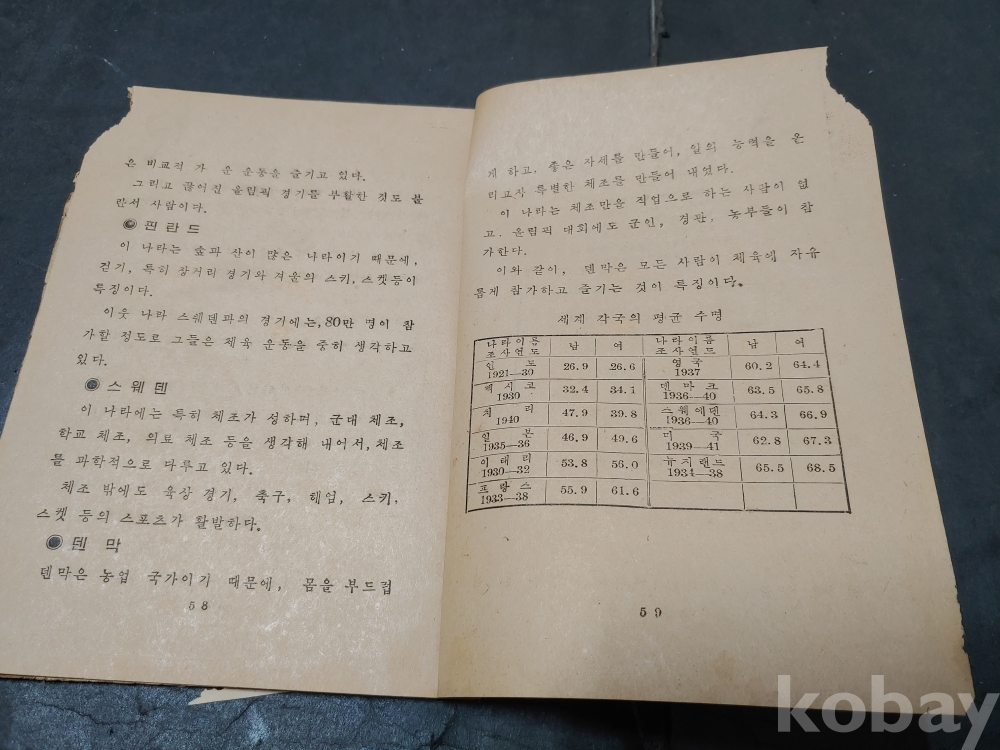 은 비교적 가 운 운동을 즐기고 있다.
그리고 끊어진 올림픽 경기를 부활한 것도 불
란서 사람이다.
◉ 핀란드
이 나라는 숲과 산이 많은 나라이기 때문에,
걷기, 특히 장거리 경기와 겨울의 스키, 스켓등이
특징이다.
이웃 나라 스웨덴과의 경기에는, 80만 명이 참
가할 정도로 그들은 체육 운동을 중히 생각하고
있다.
◉ 스웨덴
이 나라에는 특히 체조가 성하며, 군대 체조,
학교 체조, 의료 체조 등을 생각해 내어서, 체조
를 과학적으로 다루고 있다.
체조 밖에도 육상 경기, 축구, 헤엄, 스키,
스켓 등의 스포츠가 활발하다.
◉ 덴 막
덴막은 농업 국가이기 때문에, 몸을 부드럽
58
게 하고, 좋은 자세를 만들어, 일의 능력을 온
리고자 특별한 체조를 만들어 내었다.
이 나라는 체조만을 직업으로 하는 사람이 없
고, 올림픽 대회에도 군인, 경관, 농부들이 참
가한다.
이와 같이, 덴막은 모든 사람이 체육에 자유
롭게 참가하고 즐기는 것이 특징이다.
세계 각국의 평균 수명
나라이름 조사연도 남 여 나라이름 조사연도 남 여
인도 1921—30 26.9 26.6 영국 1937 60.2 64.4
멕시코 1930 32.4 34.1 덴마크 1936—40 63.5 65.8
치리 1940 47.9 39.8 스웨에덴 1936—40 64.3 66.9
일본 1935—36 46.9 49.6 미국 1939—41 62.8 67.3
이태리 1930—32 53.8 56.0 뉴지랜드 1934—38 65.5 68.5
프랑스 1933—38 55.9 61.6
59
kobay